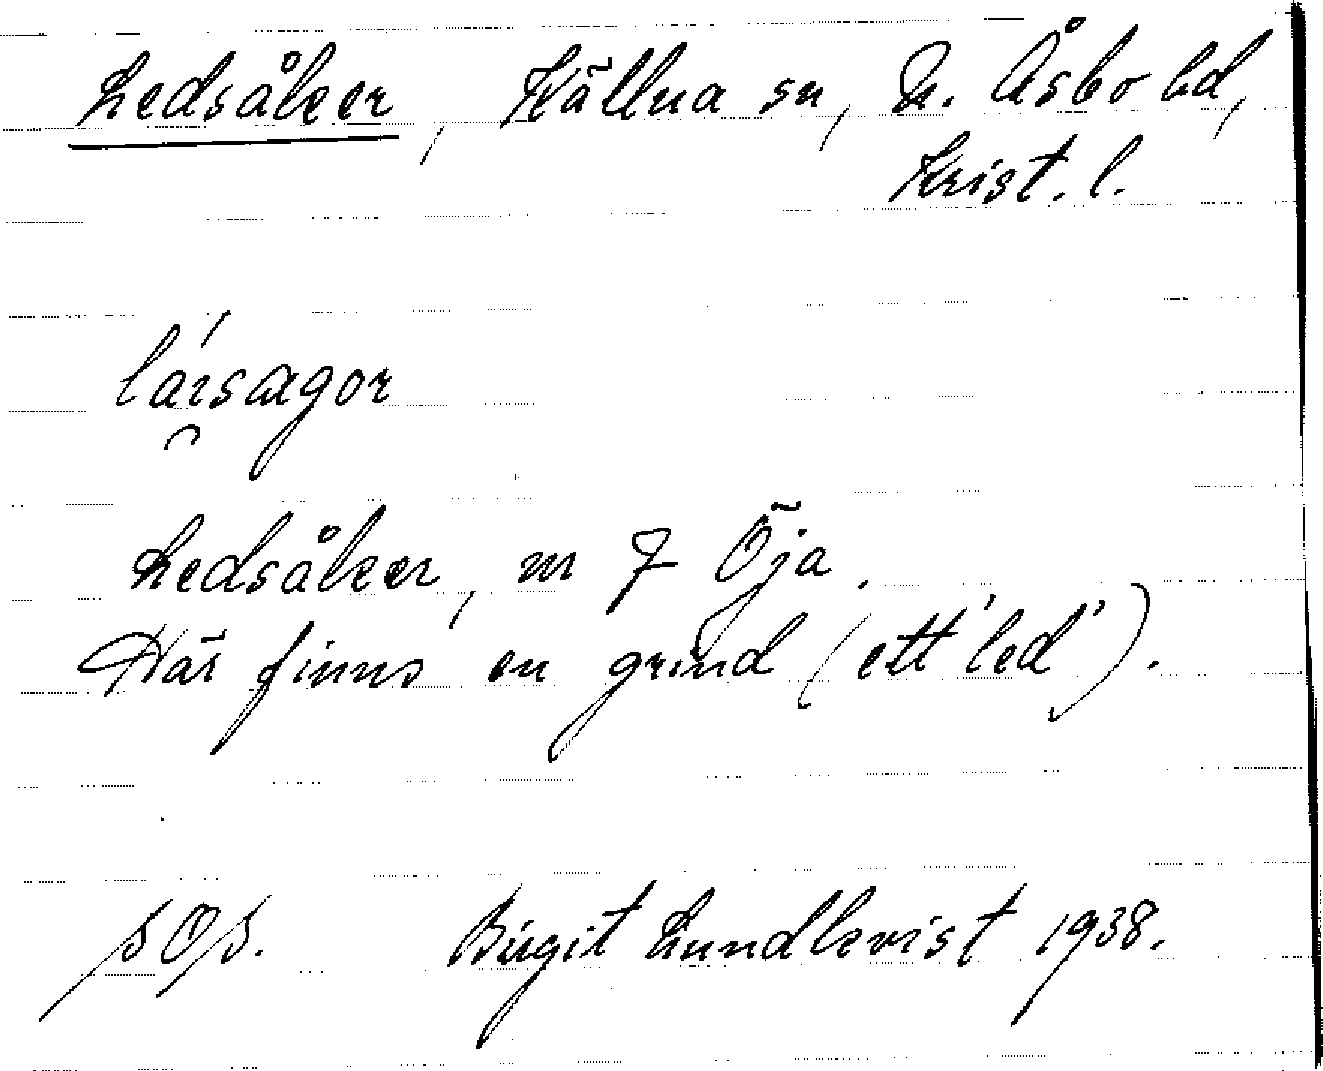 Ledsåker, Källna sn, N. Åsbo hd,
Krist. l.
láisagor
Ledsåker, nr 7 Öja.
Här finns en grind (ett 'led').
Birgit Lundkvist 1938.